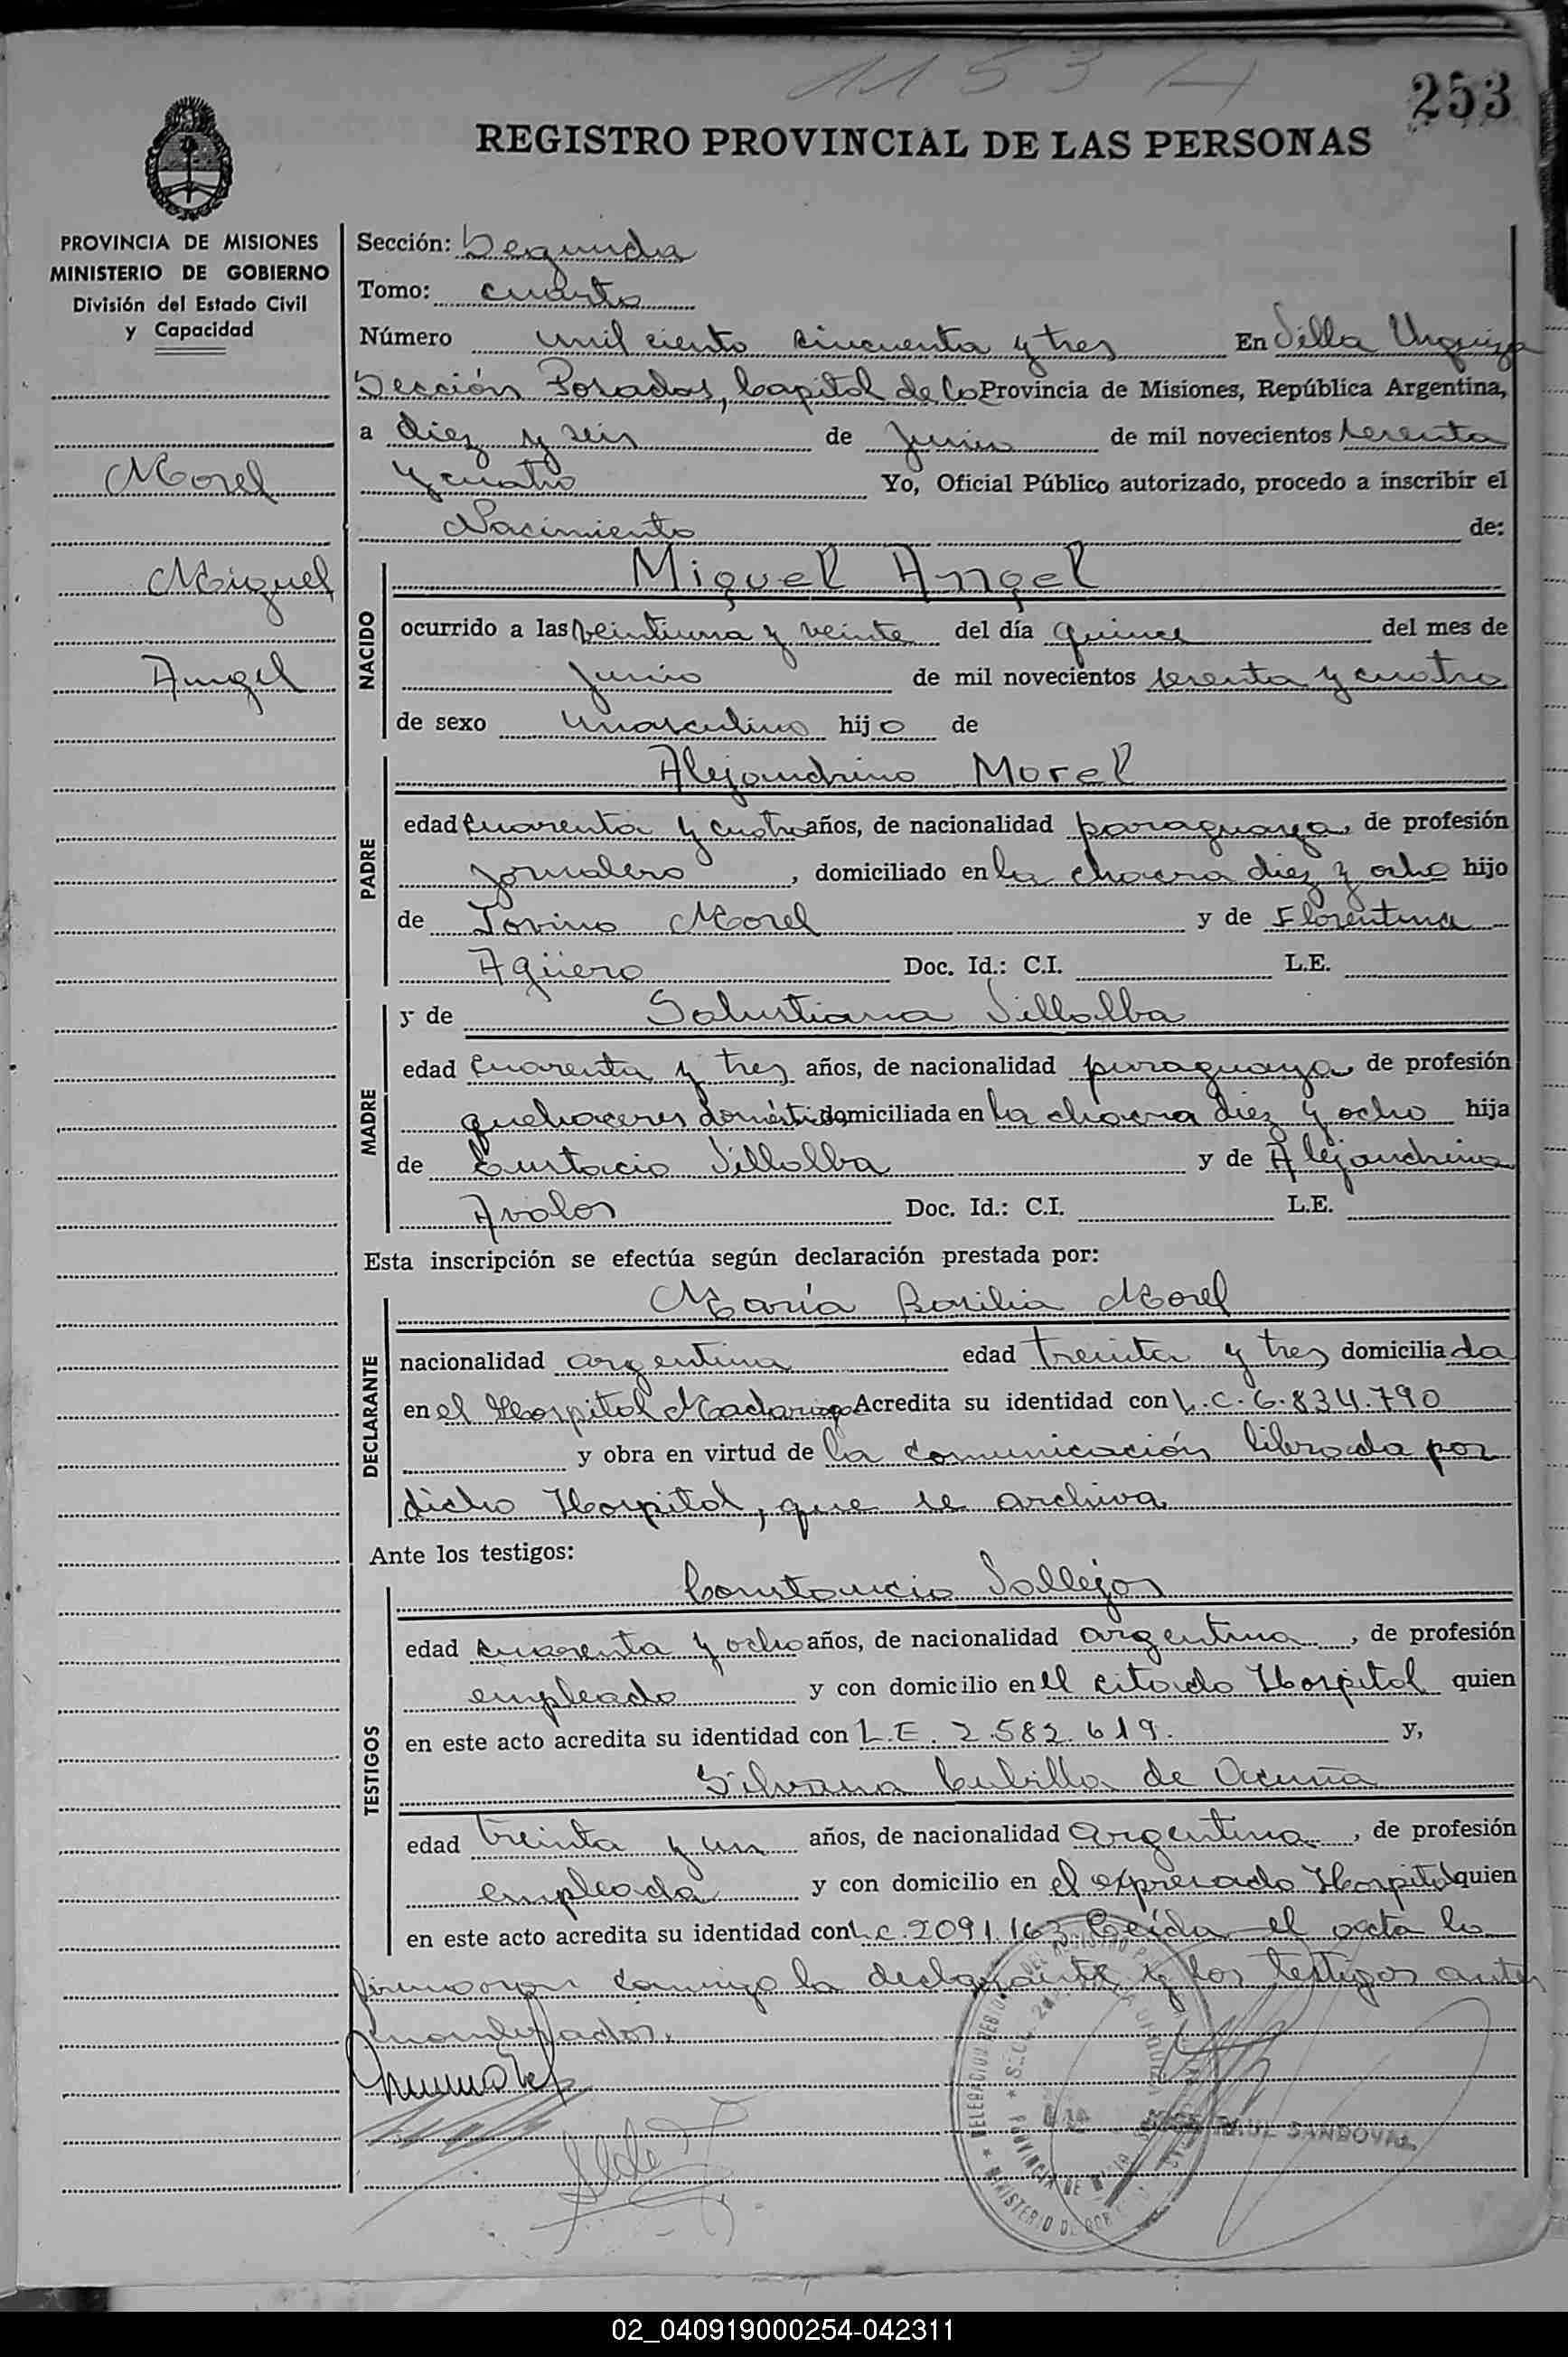 1153 H
253
REGISTRO PROVINCIAL DE LAS PERSONAS
PROVINCIA DE MISIONES
MINISTERIO DE GOBIERNO
División del Estado Civil
y Capacidad
Morel
Miguel
Angel
Sección: Segunda
Tomo: cuarto
Número mil ciento cincuenta y tres En Villa Urquiza
Sección Posadas, Capital de la Provincia de Misiones, República Argentina,
a diez y seis de Junio de mil novecientos sesenta
y cuatro Yo, Oficial Público autorizado, procedo a inscribir el
Nacimiento de:
NACIDO
Miguel Angel
ocurrido a las veintiuna y veinte del día quince del mes de
Junio de mil novecientos sesenta y cuatro
de sexo masculino hijo de
PADRE
Alejandrino Morel
edad cuarenta y cuatro años, de nacionalidad paraguaya, de profesión
jornalero, domiciliado en la chacra diez y ocho hijo
de Jovino Morel y de Florentina
Agüero Doc. Id.: C.I. L.E.
MADRE
y de Salustiana Villalba
edad cuarenta y tres años, de nacionalidad paraguaya, de profesión
quehaceres domésticos, domiciliada en la chacra diez y ocho hija
de Eustacio Villalba y de Alejandrina
Avalos Doc. Id.: C.I. L.E.
Esta inscripción se efectúa según declaración prestada por:
DECLARANTE
María Basilia Morel
nacionalidad argentina edad treinta y tres domiciliada
en el Hospital Madariaga Acredita su identidad con L.C. 6.834.790
y obra en virtud de la comunicación librada por
dicho Hospital, que se archiva.
Ante los testigos:
TESTIGOS
Constancio Vallejos
edad cuarenta y ocho años, de nacionalidad argentina, de profesión
empleado y con domicilio en el citado Hospital quien
en este acto acredita su identidad con L.E. 2.582.619. y,
Silvana Cubilla de Acuña
edad treinta y un años, de nacionalidad argentina, de profesión
empleada y con domicilio en el expresado Hospital quien
en este acto acredita su identidad con L.C. 2091.163 Leída el acta la
firmaron conmigo la declarante y los testigos antes
nombrados.
RAUL SANDOVAL
02_040919000254-042311